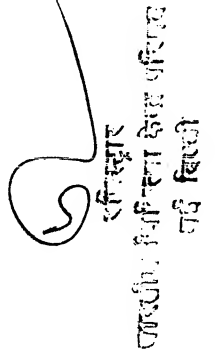 रजिस्ट्रार
भारतीय चिकित्सा केन्द्रीय परिषद
नई दिल्ली